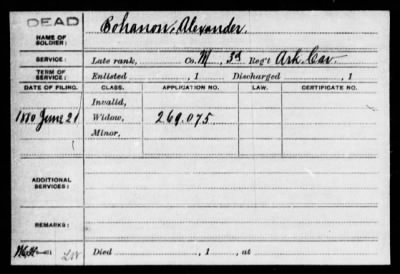 DEAD
NAME OF SOLDIER: Bohanon, Alexander.
SERVICE: Late rank, Co. M, 3d Reg't Ark. Cav.
TERM OF SERVICE: Enlisted , 1 Discharged , 1
DATE OF FILING. CLASS. APPLICATION NO. LAW. CERTIFICATE NO.
Invalid,
1880 June 21 Widow, 269.075
Minor,
ADDITIONAL SERVICES:
REMARKS:
Died , 1 , at